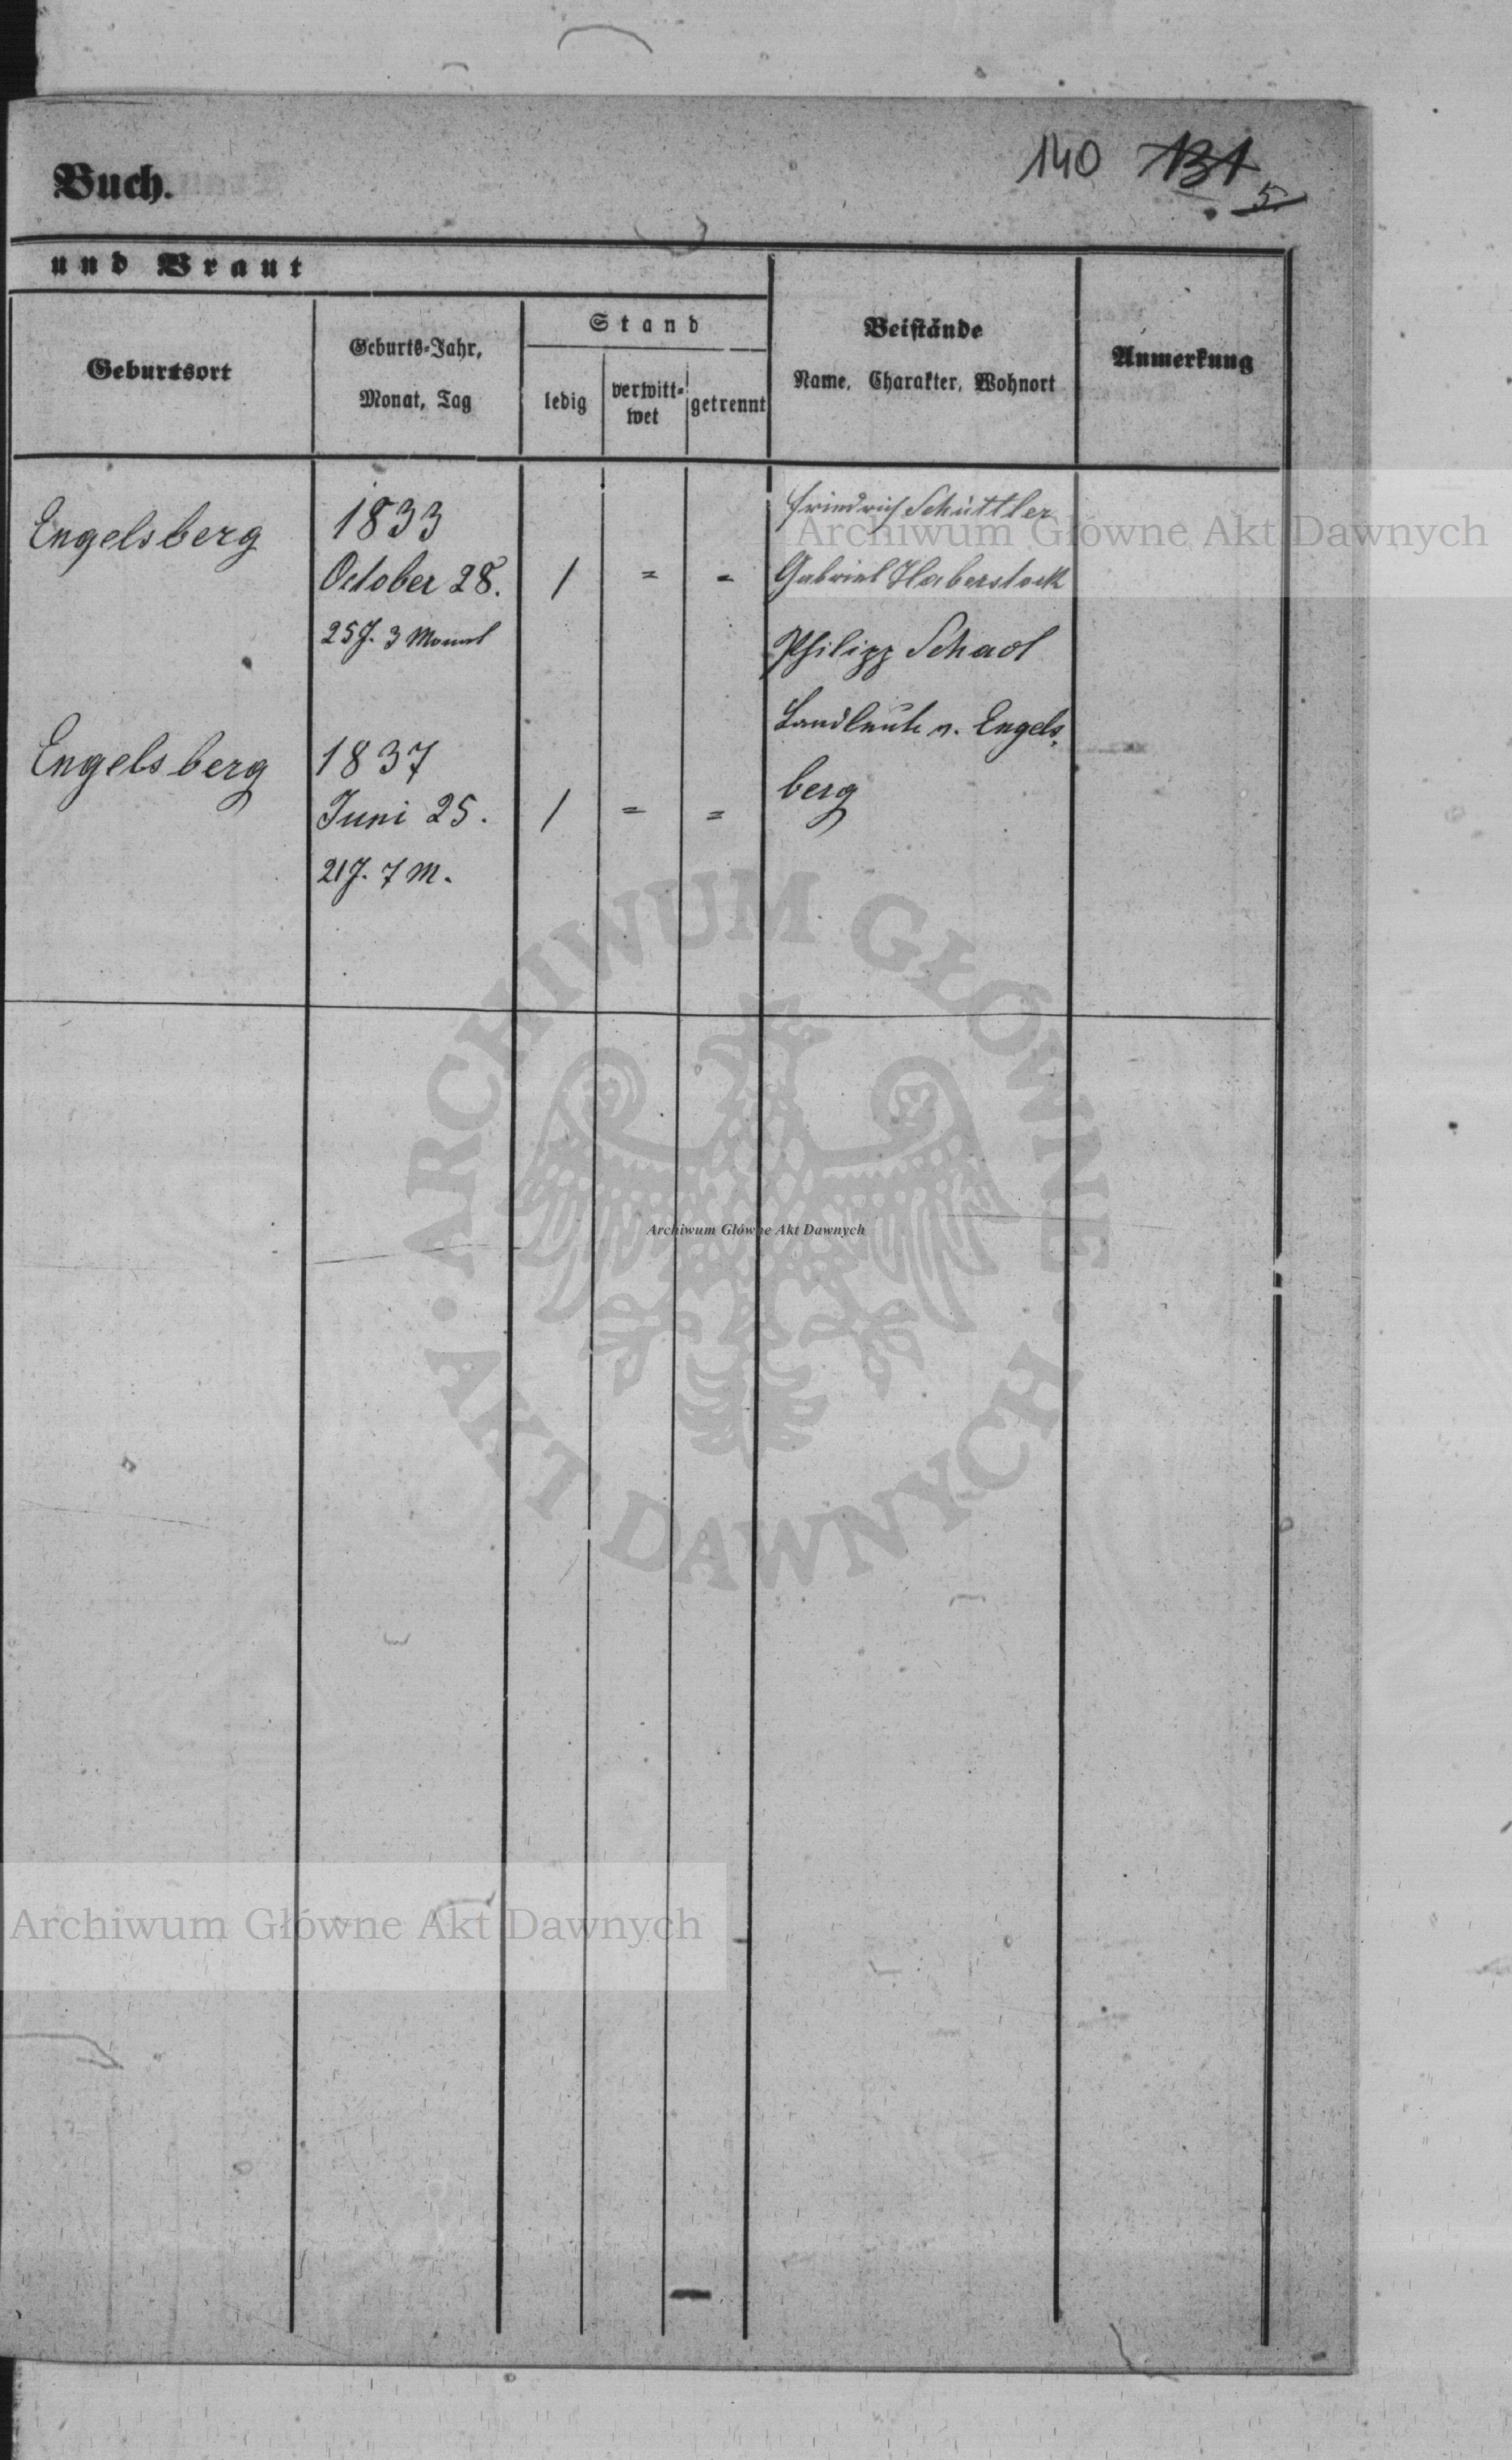 140 131
5.
Buch.
und Braut
Geburtsort
Geburts-Jahr,
Monat, Tag
Stand
ledig
verwitt-
wet
getrennt
Beistände
Name, Charakter, Wohnort
Anmerkung
Engelsberg
1833
October 28.
25 J. 3 Monat
/ = =
Friedrich Schüttler
Gabriel Haberstock
Philipp Schad
Landleute v. Engels-
berg
Engelsberg
1837
Juni 25.
21 J. 7 M.
/ = =
Archiwum Główne Akt Dawnych
ARCHIWUM GŁÓWNE
AKT DAWNYCH
Archiwum Główne Akt Dawnych
Archiwum Główne Akt Dawnych